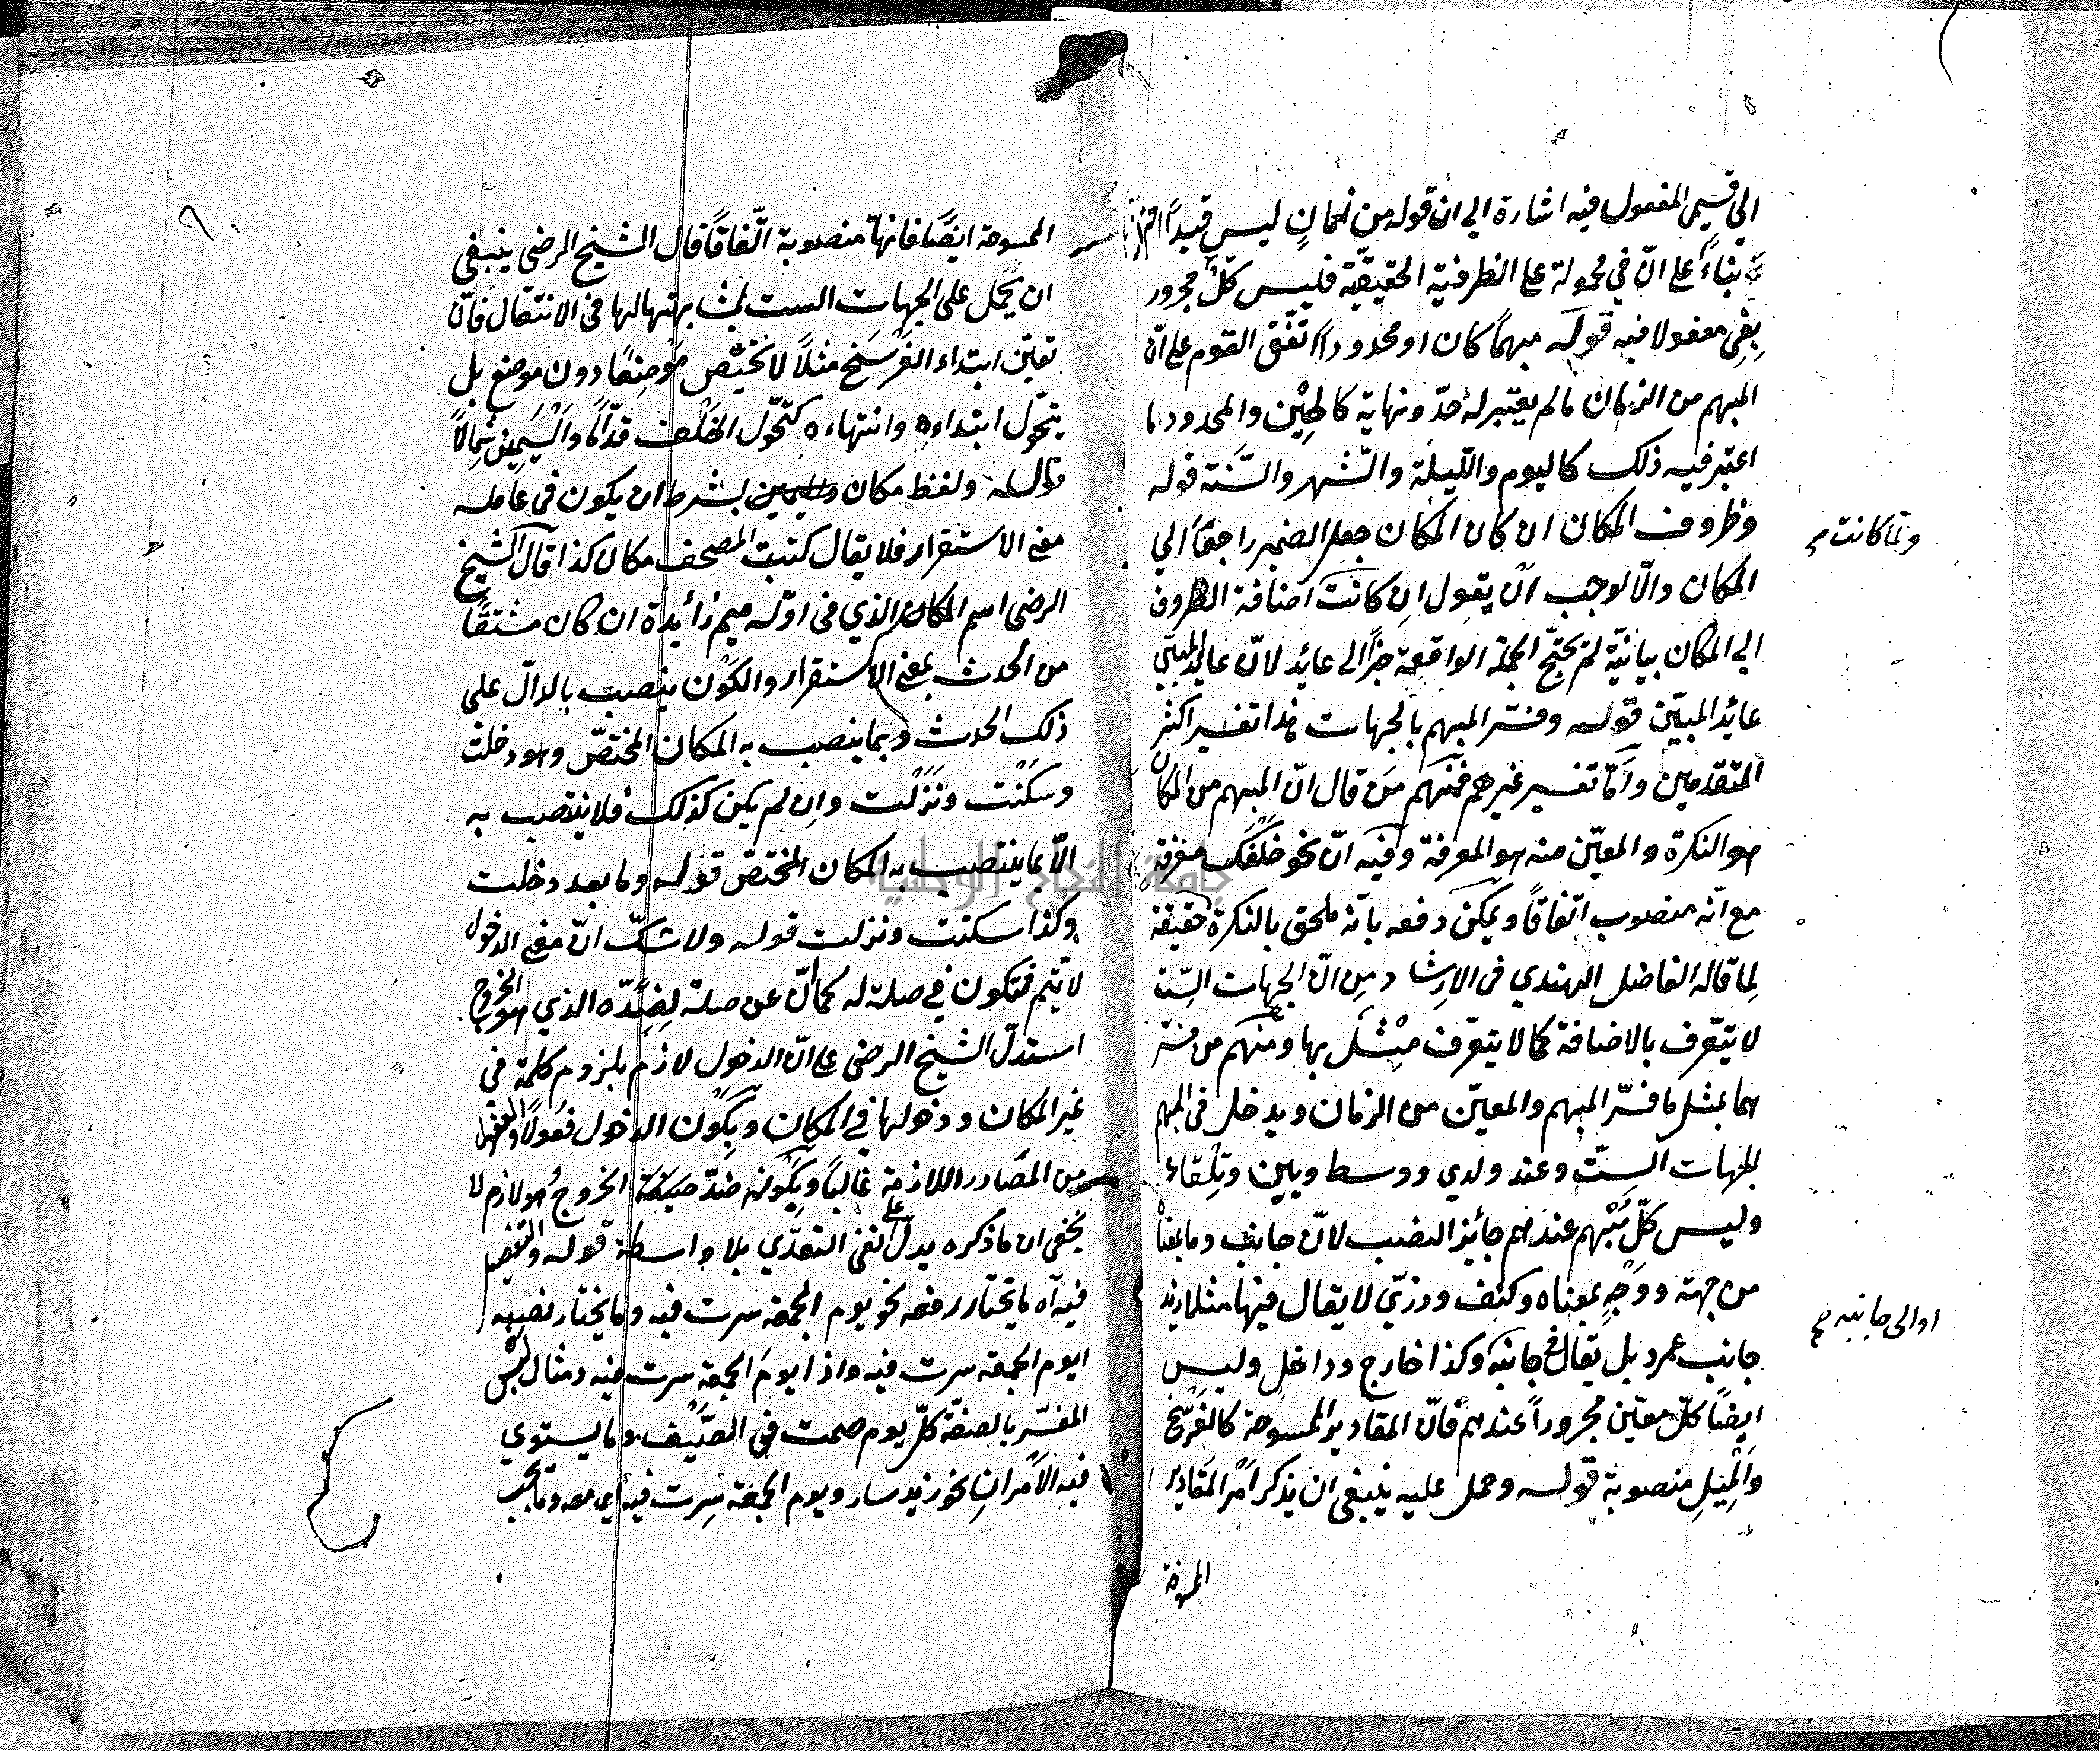 الي قسمي المفعول فيه اشارة الي ان قوله من زمان ليس قيداً
بناءً علي انّ في محمولة علي الظرفية الحقيقيّة فليس كلّ مجرور
بفي مفعولا فيه قوله مبهماً كان او محدوداً اتّفق القوم علي انّ
المبهم من الزمان ما لم يعتبر له حدّ ونهاية كالحِيْن والمحدود ما
اعتبر فيه ذلك كاليوم واللّيلة والشّهر والسّنة قوله
وظروف المكان ان كان المكان جعل الضمير راجعاً الي
المكان والّا لوجب ان يقول ان كانت اضافة الظروف
الي المكان بيانيّة لم يحتج الجملة الواقعة خبراً الى عائد لانّ عائد المبيّن
عائد المبيّن قوله وفسّر المبهم بالجهات هذا تفسير اكثر
المتقدمين وامّا تفسير غيرهم فمنهم مَن قال انّ المبهم من المكان
هو النكرة والمعيّن منه هو المعرفة وفيه انّ نحو خلْفَك معرفة
مع انّه منصوب اتّفاقاً ويمكن دفعه بانّه ملحق بالنكرة حقيقة
لِما قاله الفاضل الهندي في الارشاد مِن انّ الجهات السّت
لا يتعرّف بالاضافة كما لا يتعرّف مِثْل بها ومنهم من فسّر
هما بمثل ما فسّر المبهم والمعيّن من الزمان ويدخل في المبهم
الجهات السِتّ وعند ولدي ووسط وبين وتِلْقاء
وليس كلّ مُبْهم عندهم جائز النصب لانّ جانب وما بمعناه
من جهة ووَجْهٍ بمعناه وكنف وذرّي لا يقال فيها مثلا زيد
جانب عمرو بل يقال في جانبه وكذا خارج وداخل وليس
ايضاً كلّ معيّن مجروراً عندهم فانّ المقادير الممسوحة كالفرسخ
والمِيل منصوبة قوله وحمل عليه ينبغي ان يذكر امْر المقادير
الممسوحة
وانما كانت صح
او الى جانبه صح
الممسوحة ايضًا فانها منصوبة اتّفاقًا قال الشيخ الرضي ينبغي
ان يحمل على الجهات الست لمشابهتها لها في الانتقال فانّ
تعيّن ابتداء الفَرْسَخ مثلاً لا يختصّ مَوضِعًا دون موضع بل
يتحوّل ابتداءه وانتهاءه كتحوّل الخلْف قدّامًا واليَمِين شِمالاً
قوله ولفظ مكان بشرط ان يكون في عامله
معنى الاستقرار فلا يقال كتبت المصحف مكان كذا قال الشيخ
الرضي اسم المكان الذي في اوّله ميم زائدة ان كان مشتقًّا
من الحدث بمعنى الاستقرار والكَوْن ينصب بالدالّ على
ذلك الحدث وبما ينصب به المكان المختصّ وهو دخلت
وسكَنْت ونَزَلْت وان لم يكن كذلك فلا ينتصب به
الّا بما ينتصب به المكان المختصّ قوله وما بعد دخلت
وكذا سكنت ونزلت قوله ولا شكّ انّ معنى الدخول
لا يتم فتكون في صلة له كما انّ عن صلة لِضدّه الذي هو الخروج
استدلّ الشيخ الرضي علي انّ الدخول لازم بلزوم كلمة في
غير المكان ودخولها في المكان وبكون الدخول فعولاً والفعول
من المصادر اللازمة غالباً وبكونه ضدّ الخروج هو لازم لا
يخفى ان ما ذكره يدلّ على نفي التعدّي بلا واسطة قوله والتفصيل
فيه آه ما يختار رفعه نحو يوم الجمعة سرت فيه وما يختار نصبه
ايوم الجمعة سرت فيه واذا يومَ الجمعة سرت فيه ومثال لبس
المفسّر بالصفة كلّ يوم صمت في الصّيف وما يستوي
فيه الامران نحو زيد سار ويوم الجمعة سِرت فيه اي معه وما يجب